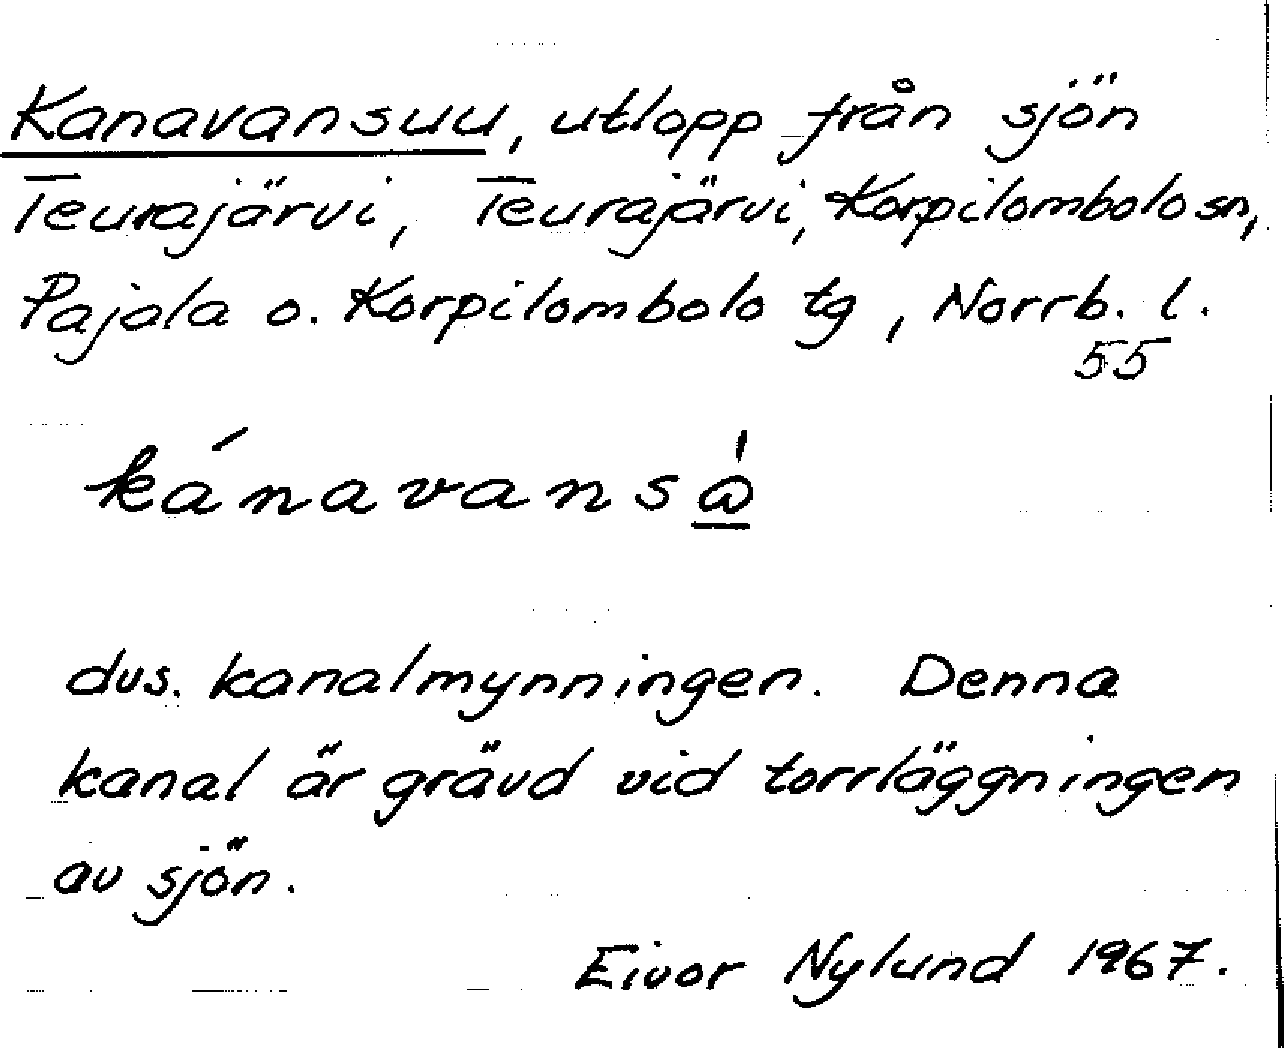 Kanavansuu, utlopp från sjön
Teurajärvi, Teurajärvi, Korpilombolo sn,
Pajala o. Korpilombolo tg, Norrb. l.
55
kánavansὼ̲
dvs. kanalmynningen. Denna
kanal är grävd vid torrläggningen
av sjön.
Eivor Nylund 1967.